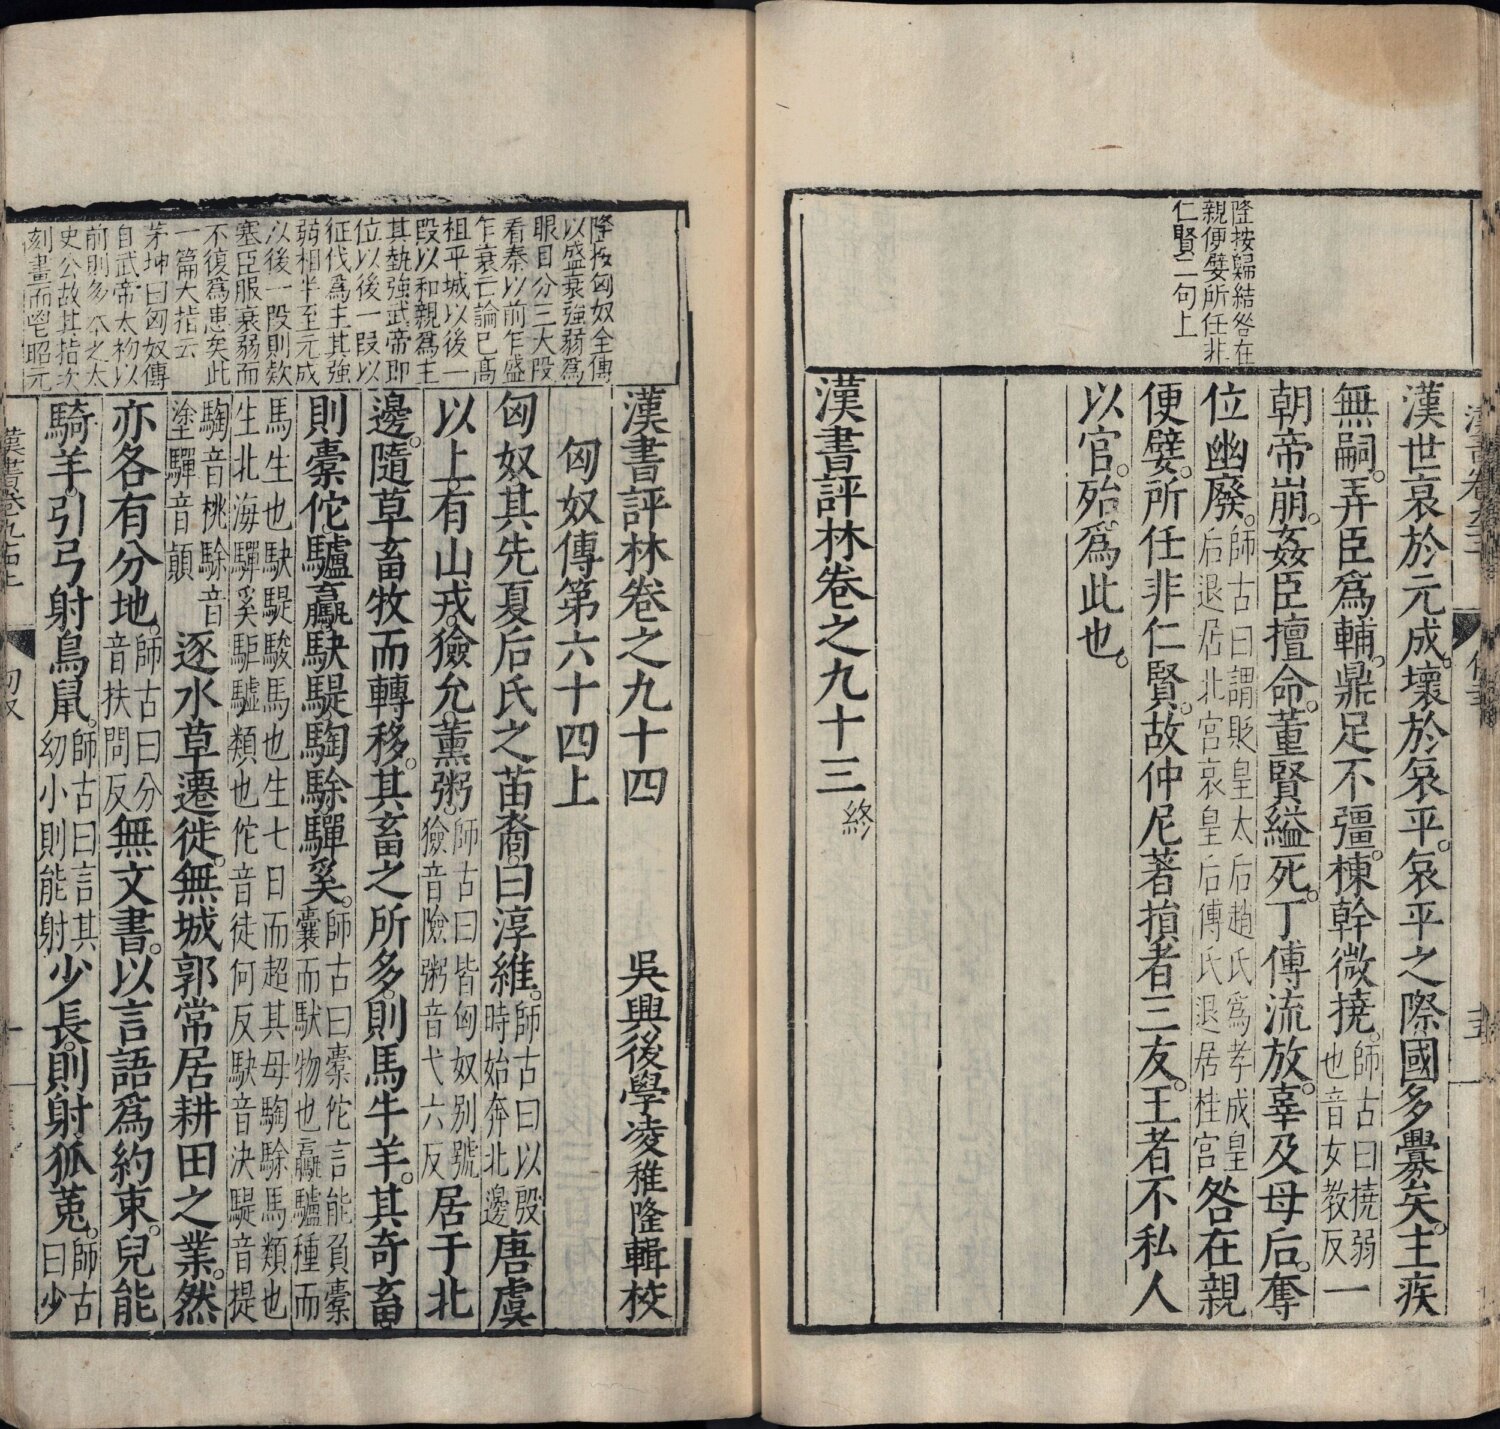 隆按歸結咎在
親便嬖所任非
仁賢二句上
漢世衰於元成。壞於哀平。哀平之際。國多釁矣。主疾
無嗣。弄臣爲輔。鼎足不彊。棟幹微撓。師古曰撓弱也音女教反一
朝帝崩。姦臣擅命。董賢縊死。丁傅流放。辜及母后。奪
位幽廢。師古曰謂貶皇太后趙氏爲孝成皇后退居北宮哀皇后傅氏退居桂宮咎在親
便嬖。所任非仁賢。故仲尼著損者三友。王者不私人
以官。殆爲此也。
漢書評林卷之九十三終
隆按匈奴全傳
以盛衰強弱爲
眼目分三大段
看秦以前乍盛
乍衰亡論已高
祖平城以後一
段以和親爲主
其勢強武帝即
位以後一段以
征伐爲主其強
弱相半至元成
以後一段則欵
塞臣服衰弱而
不復爲患矣此
一篇大指云
茅坤曰匈奴傳
自武帝太初以
前則多本之太
史公故其指次
刻畫而鬯昭元
漢書評林卷之九十四
吳興後學凌稚隆輯校
匈奴傳第六十四上
匈奴其先夏后氏之苗裔。曰淳維。師古曰以殷時始奔北邊唐虞
以上。有山戎。獫允。薰粥。師古曰皆匈奴別號獫音險粥音弋六反居于北
邊。隨草畜牧而轉移。其畜之所多。則馬牛羊。其奇畜
則橐佗驢驘駃騠騊駼驒奚。師古曰橐佗言能負橐囊而馱物也驘驢種而
馬生也駃騠駿馬也生七日而超其母騊駼馬類也生北海驒奚駏驉類也佗音徒何反駃音決騠音提
騊音桃駼音塗驒音顛逐水草遷徙。無城郭常居耕田之業。然
亦各有分地。師古曰分音扶問反無文書。以言語爲約束。兒能
騎羊。引弓射鳥鼠。師古曰言其幼小則能射少長。則射狐菟。師古曰少